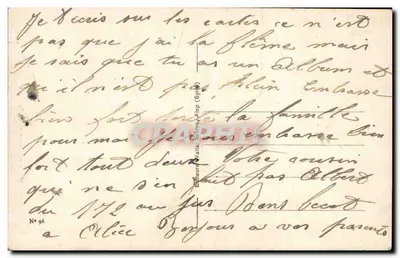 Je t'ecris sur les cartes ce n'est
pas que j'ai la flême mais
je sais que tu as un album et
qu'il n'est pas plein Embrasse
bien fort toute la famille
pour moi je vous embrasse bien
fort tout deux Votre cousin
qui ne s'en fait pas Albert
du 172 au jus Bons becot
a Alice Bonjour a vos parents